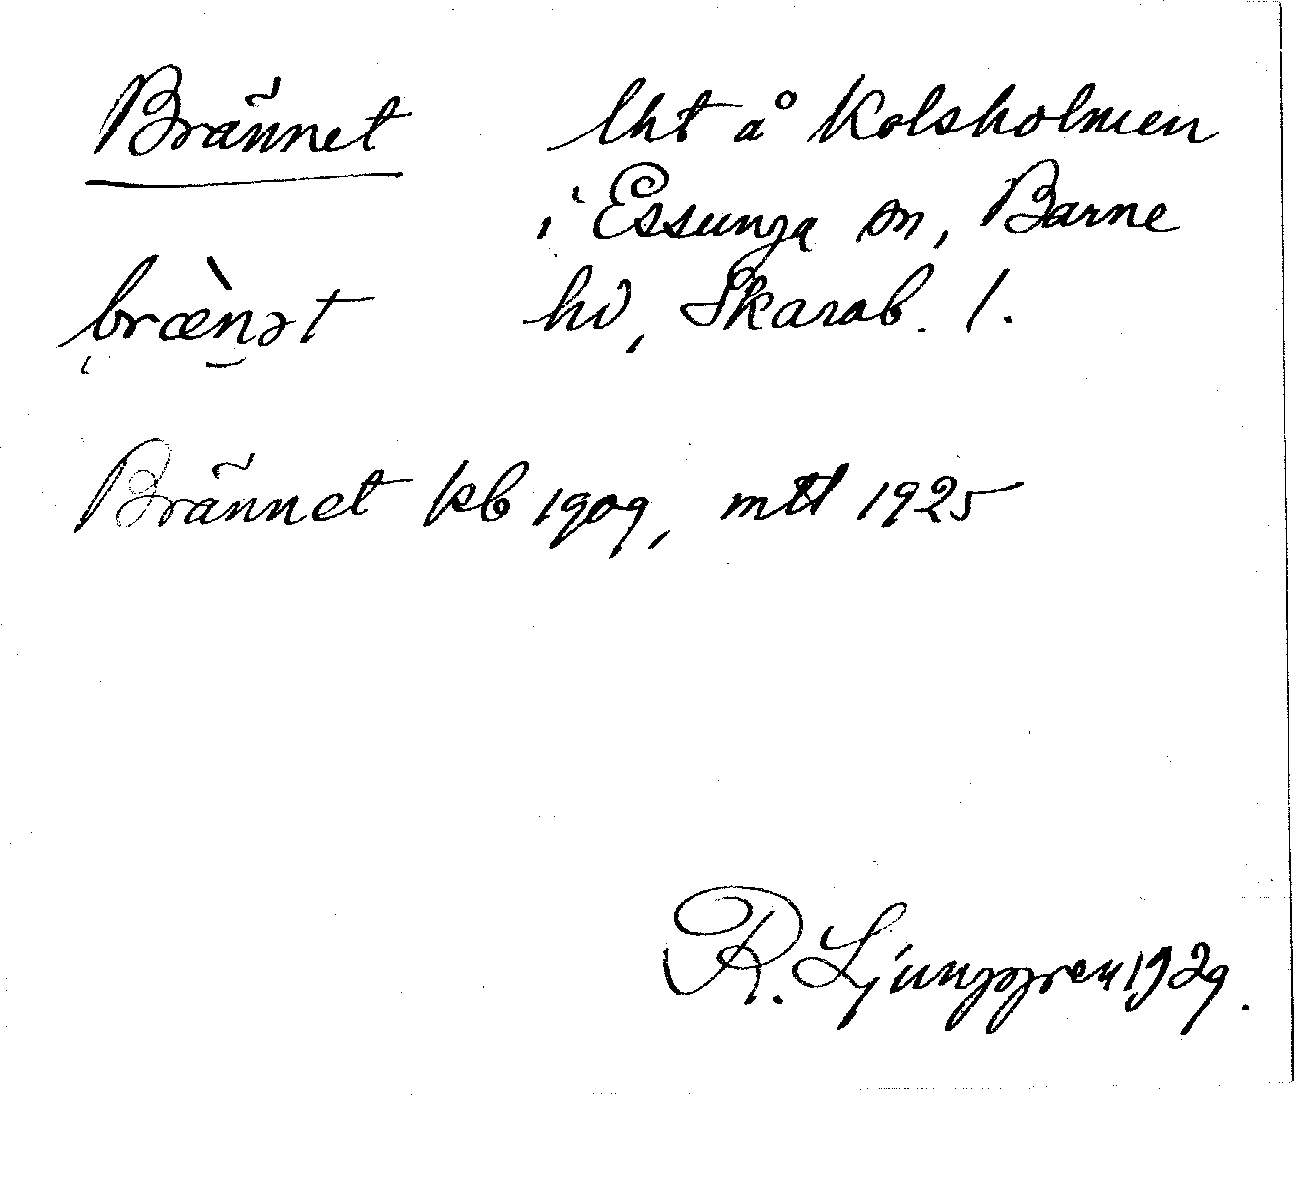 Brännet lht å Kolsholmen
i Essunga sn, Barne
bræ̀nət hd, Skarab. l.
Brännet kb 1909, mtl 1925
R. Ljunggren 1929.